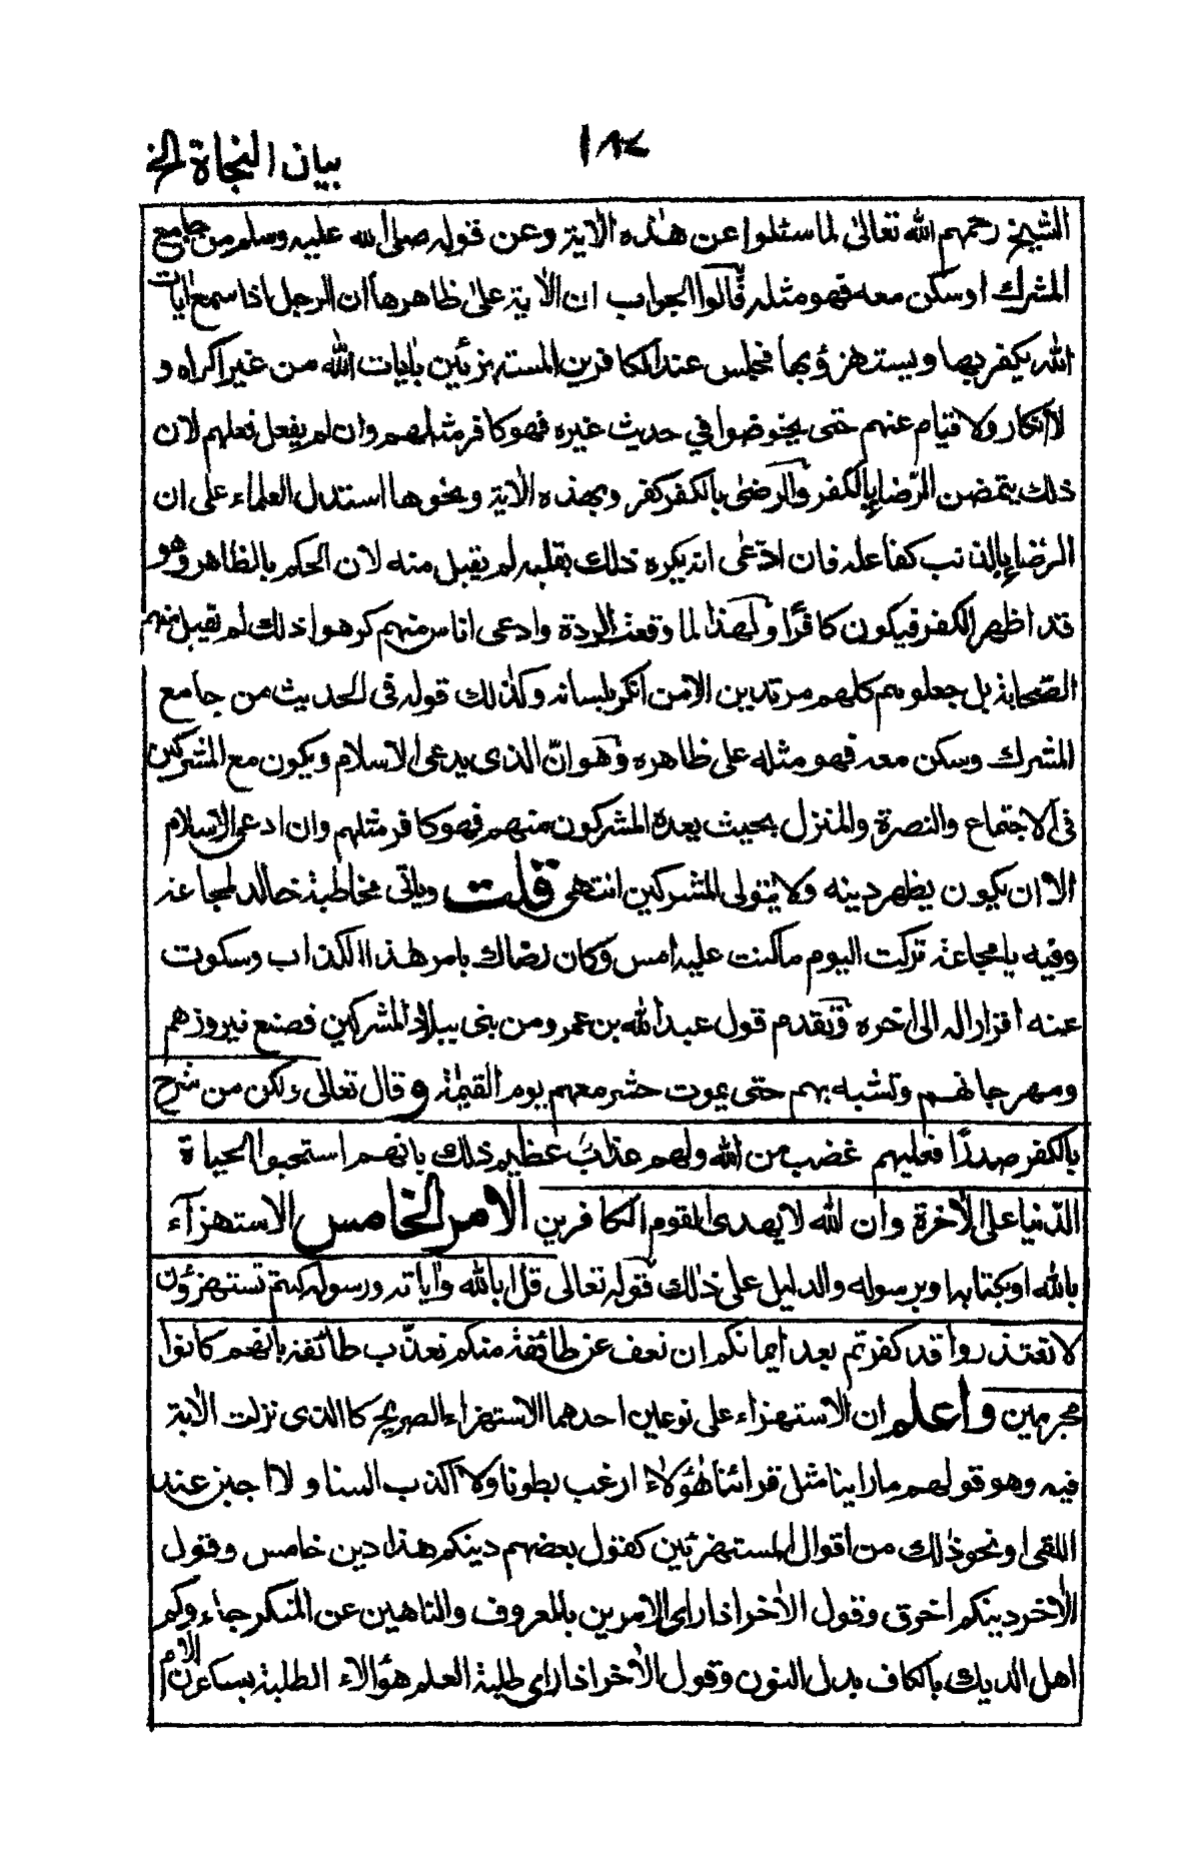 بيان النجاة الخ
١٨٤
الشيخ رحمهم الله تعالى لما سئلوا عن هذه الآية وعن قوله صلى الله عليه وسلم من جامع
المشرك او سكن معه فهو مثله قالوا الجواب ان الآية على ظاهرها ان الرجل اذا سمع ايات
الله يكفر بها ويستهزؤ بها فجلس عند الكافرين المستهزئين بايات الله من غير اكراه و
لا انكار ولا قيام عنهم حتى يخوضوا في حديث غيره فهو كافر مثلهم وان لم يفعل فعلهم لان
ذلك يتمضن الرضا بالكفر والرضى بالكفر كفر وبهذه الآية ونحوها استدل العلماء على ان
الرضا بالذنب كفاعله فان ادعى انه يكره ذلك بقلبه لم يقبل منه لان الحكم بالظاهر وهو
قد اظهر الكفر فيكون كافرًا ولهذا لما وقعت الردة وادعى اناس منهم كرهوا ذلك لم يقبل منهم
الصحابة بل جعلوهم كلهم مرتدين الا من انكر بلسانه وكذلك قوله في الحديث من جامع
المشرك وسكن معه فهو مثله على ظاهره وهو انّ الذى يدعى الاسلام ويكون مع المشركين
فى الاجتماع والنصرة والمنزل بحيث يعده المشركون منهم فهو كافر مثلهم وان ادعى الاسلام
الا ان يكون يظهر دينه ولا يتولى المشركين انتهى قلت ويأتى مخاطبة خالد لمجاعة
وفيه يا مجاعة تركت اليوم ما كنت عليه امس وكان رضاك بامر هذا الكذاب وسكوت
عنه اقرارا له الى اخره وتقدم قول عبد الله بن عمر ومن بنى ببلاد المشركين فصنع نيروزهم
ومهرجانهم وتشبه بهم حتى يموت حشر معهم يوم القيمة وقال تعالى ولكن من شرح
بالكفر صدرًا فعليهم غضب من الله ولهم عذاب عظيم ذلك بانهم استحبوا الحياة
الدنيا على الآخرة وان الله لا يهدى القوم الكافرين الامر الخامس الاستهزآء
بالله او بكتابه او برسوله والدليل على ذلك قوله تعالى قل ابالله وآياته ورسوله كنتم تستهزؤن
لا تعتذروا قد كفرتم بعد ايمانكم ان نعف عن طائفة منكم نعذب طائفة بانهم كانوا
مجرمين واعلم ان الاستهزاء على نوعين احدهما الاستهزاء الصريح كالذى نزلت الآية
فيه وهو قولهم ما راينا مثل قرائنا هؤلاء ارغب بطونا ولا اكذب السنا ولا اجبن عند
اللقى او نحو ذلك من اقوال المستهزئين كقول بعضهم دينكم هذا دين خامس وقول
الآخر دينكم اخرق وقول الآخر اذا راى الآمرين بالمعروف والناهين عن المنكر جاءوكم
اهل الديك بالكاف بدل النون وقول الآخر اذا راى طلبة العلم هؤلاء الطلبة بسكون اللام